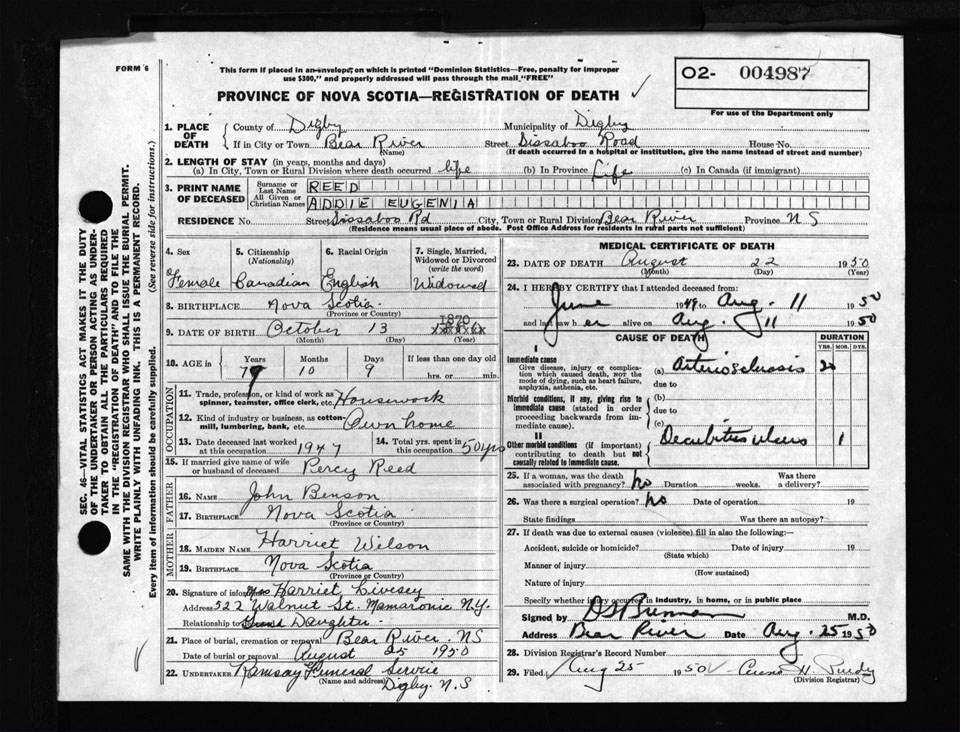 FORM 6
This form if placed in an envelope, on which is printed "Dominion Statistics—Free, penalty for improper
use $300," and properly addressed will pass through the mail "FREE"
O2- 004987
PROVINCE OF NOVA SCOTIA—REGISTRATION OF DEATH
For use of the Department only
1. PLACE OF DEATH
County of Digby Municipality of Digby
If in City or Town Bear River Street Sissaboo Road House No.
(Name) (If death occurred in a hospital or institution, give the name instead of street and number)
2. LENGTH OF STAY (in years, months and days)
(a) In City, Town or Rural Division where death occurred life (b) In Province Life (c) In Canada (if immigrant)
3. PRINT NAME OF DECEASED
Surname or Last Name REED
All Given or Christian Names ADDIE EUGENIA
RESIDENCE No. Street Sissaboo Rd City, Town or Rural Division Bear River Province N S
(Residence means usual place of abode. Post Office Address for residents in rural parts not sufficient)
4. Sex 5. Citizenship (Nationality) 6. Racial Origin 7. Single, Married, Widowed or Divorced (write the word)
Female Canadian English Widowed
8. BIRTHPLACE Nova Scotia
(Province or Country)
9. DATE OF BIRTH October 13 1870
(Month) (Day) (Year)
10. AGE in Years Months Days If less than one day old
79 10 9 hrs. or min.
OCCUPATION
11. Trade, profession, or kind of work as spinner, teamster, office clerk, etc. Housework
12. Kind of industry or business, as cotton-mill, lumbering, bank, etc. Own home
13. Date deceased last worked at this occupation 1947
14. Total yrs. spent in this occupation 50 yrs
15. If married give name of wife or husband of deceased Percy Reed
FATHER
16. NAME John Benson
17. BIRTHPLACE Nova Scotia
(Province or Country)
MOTHER
18. MAIDEN NAME Harriet Wilson
19. BIRTHPLACE Nova Scotia
(Province or Country)
20. Signature of informant Mrs Harriet Livesey
Address 522 Walnut St. Mamaronic N.Y.
Relationship to Grand Daughter
21. Place of burial, cremation or removal Bear River. NS
Date of burial or removal August 25 1950
22. UNDERTAKER Ramsay Funeral Service
(Name and address) Digby. N.S
MEDICAL CERTIFICATE OF DEATH
23. DATE OF DEATH August 22 1950
(Month) (Day) (Year)
24. I HEREBY CERTIFY that I attended deceased from:
June 1949 to Aug. 11 1950
and last saw her alive on Aug. 11 1950
CAUSE OF DEATH DURATION
YRS. MOS. DYS.
I
Immediate cause
Give disease, injury or complication which caused death, NOT the mode of dying, such as heart failure, asphyxia, asthenia, etc.
(a) Arteriosclerosis 20
due to
Morbid conditions, if any, giving rise to immediate cause (stated in order proceeding backwards from immediate cause).
(b)
due to
(c)
II
Other morbid conditions (if important) contributing to death but not causally related to immediate cause.
Decubitus ulcers 1
25. If a woman, was the death associated with pregnancy? no Duration weeks. Was there a delivery?
26. Was there a surgical operation? no Date of operation 19
State findings Was there an autopsy?
27. If death was due to external causes (violence) fill in also the following:—
Accident, suicide or homicide? Date of injury 19
(State which)
Manner of injury
(How sustained)
Nature of injury
Specify whether injury occurred in industry, in home, or in public place
Signed by M.D.
Address Bear River Date Aug. 25 1950
28. Division Registrar's Record Number
29. Filed Aug 25 1950
(Division Registrar)
SEC. 46—VITAL STATISTICS ACT MAKES IT THE DUTY
OF THE UNDERTAKER OR PERSON ACTING AS UNDER-
TAKER TO OBTAIN ALL THE PARTICULARS REQUIRED
IN THE "REGISTRATION OF DEATH" AND TO FILE THE
SAME WITH THE DIVISION REGISTRAR WHO SHALL ISSUE THE BURIAL PERMIT.
WRITE PLAINLY WITH UNFADING INK. THIS IS A PERMANENT RECORD.
Every item of information should be carefully supplied. (See reverse side for instructions.)